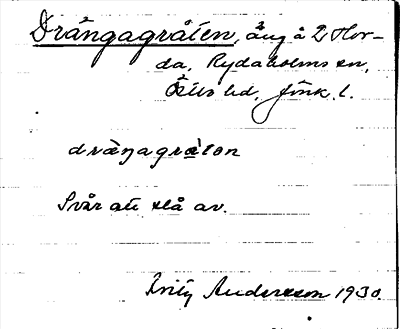 Drängagråten, äng å 2 Hor-
da, Rydaholms sn,
Östbo hd, Jönk. l.
dräŋagràtən
Svår att slå av.
Andersson 1930.